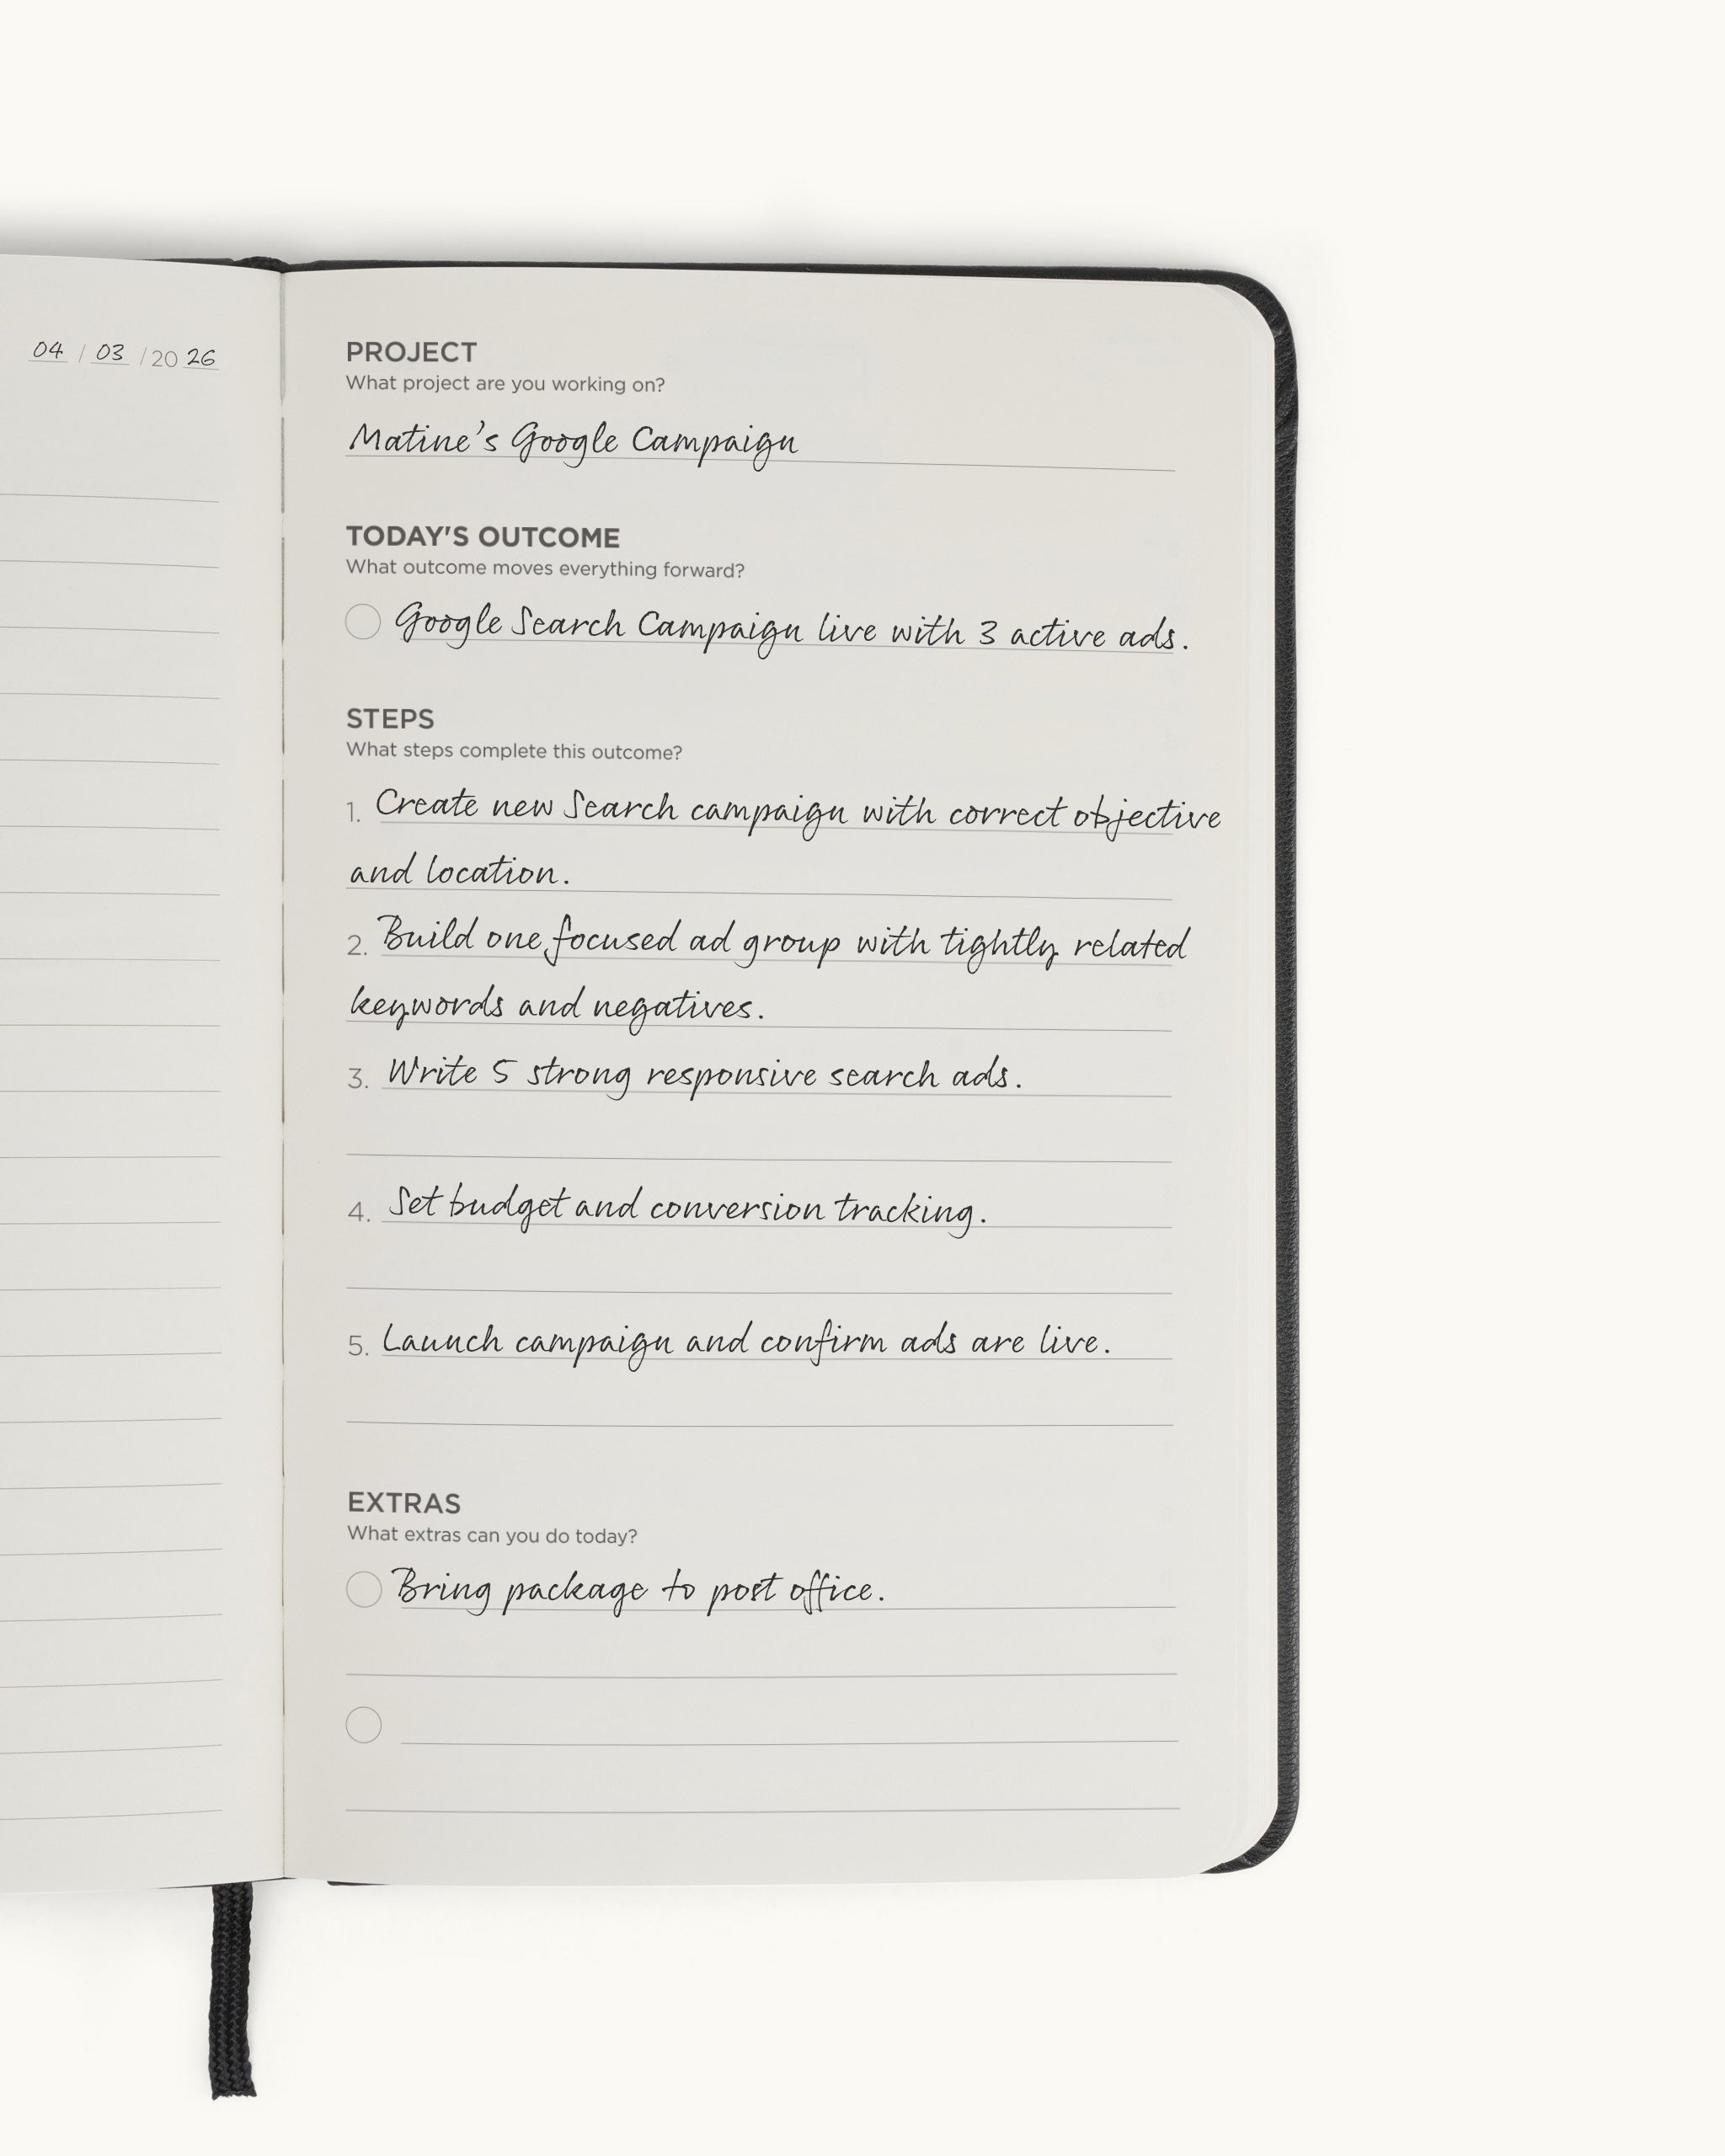 04 / 03 / 20 26
PROJECT
What project are you working on?
Matine's Google Campaign
TODAY'S OUTCOME
What outcome moves everything forward?
Google Search Campaign live with 3 active ads.
STEPS
What steps complete this outcome?
1. Create new Search campaign with correct objective
and location.
2. Build one focused ad group with tightly related
keywords and negatives.
3. Write 5 strong responsive search ads.
4. Set budget and conversion tracking.
5. Launch campaign and confirm ads are live.
EXTRAS
What extras can you do today?
Bring package to post office.